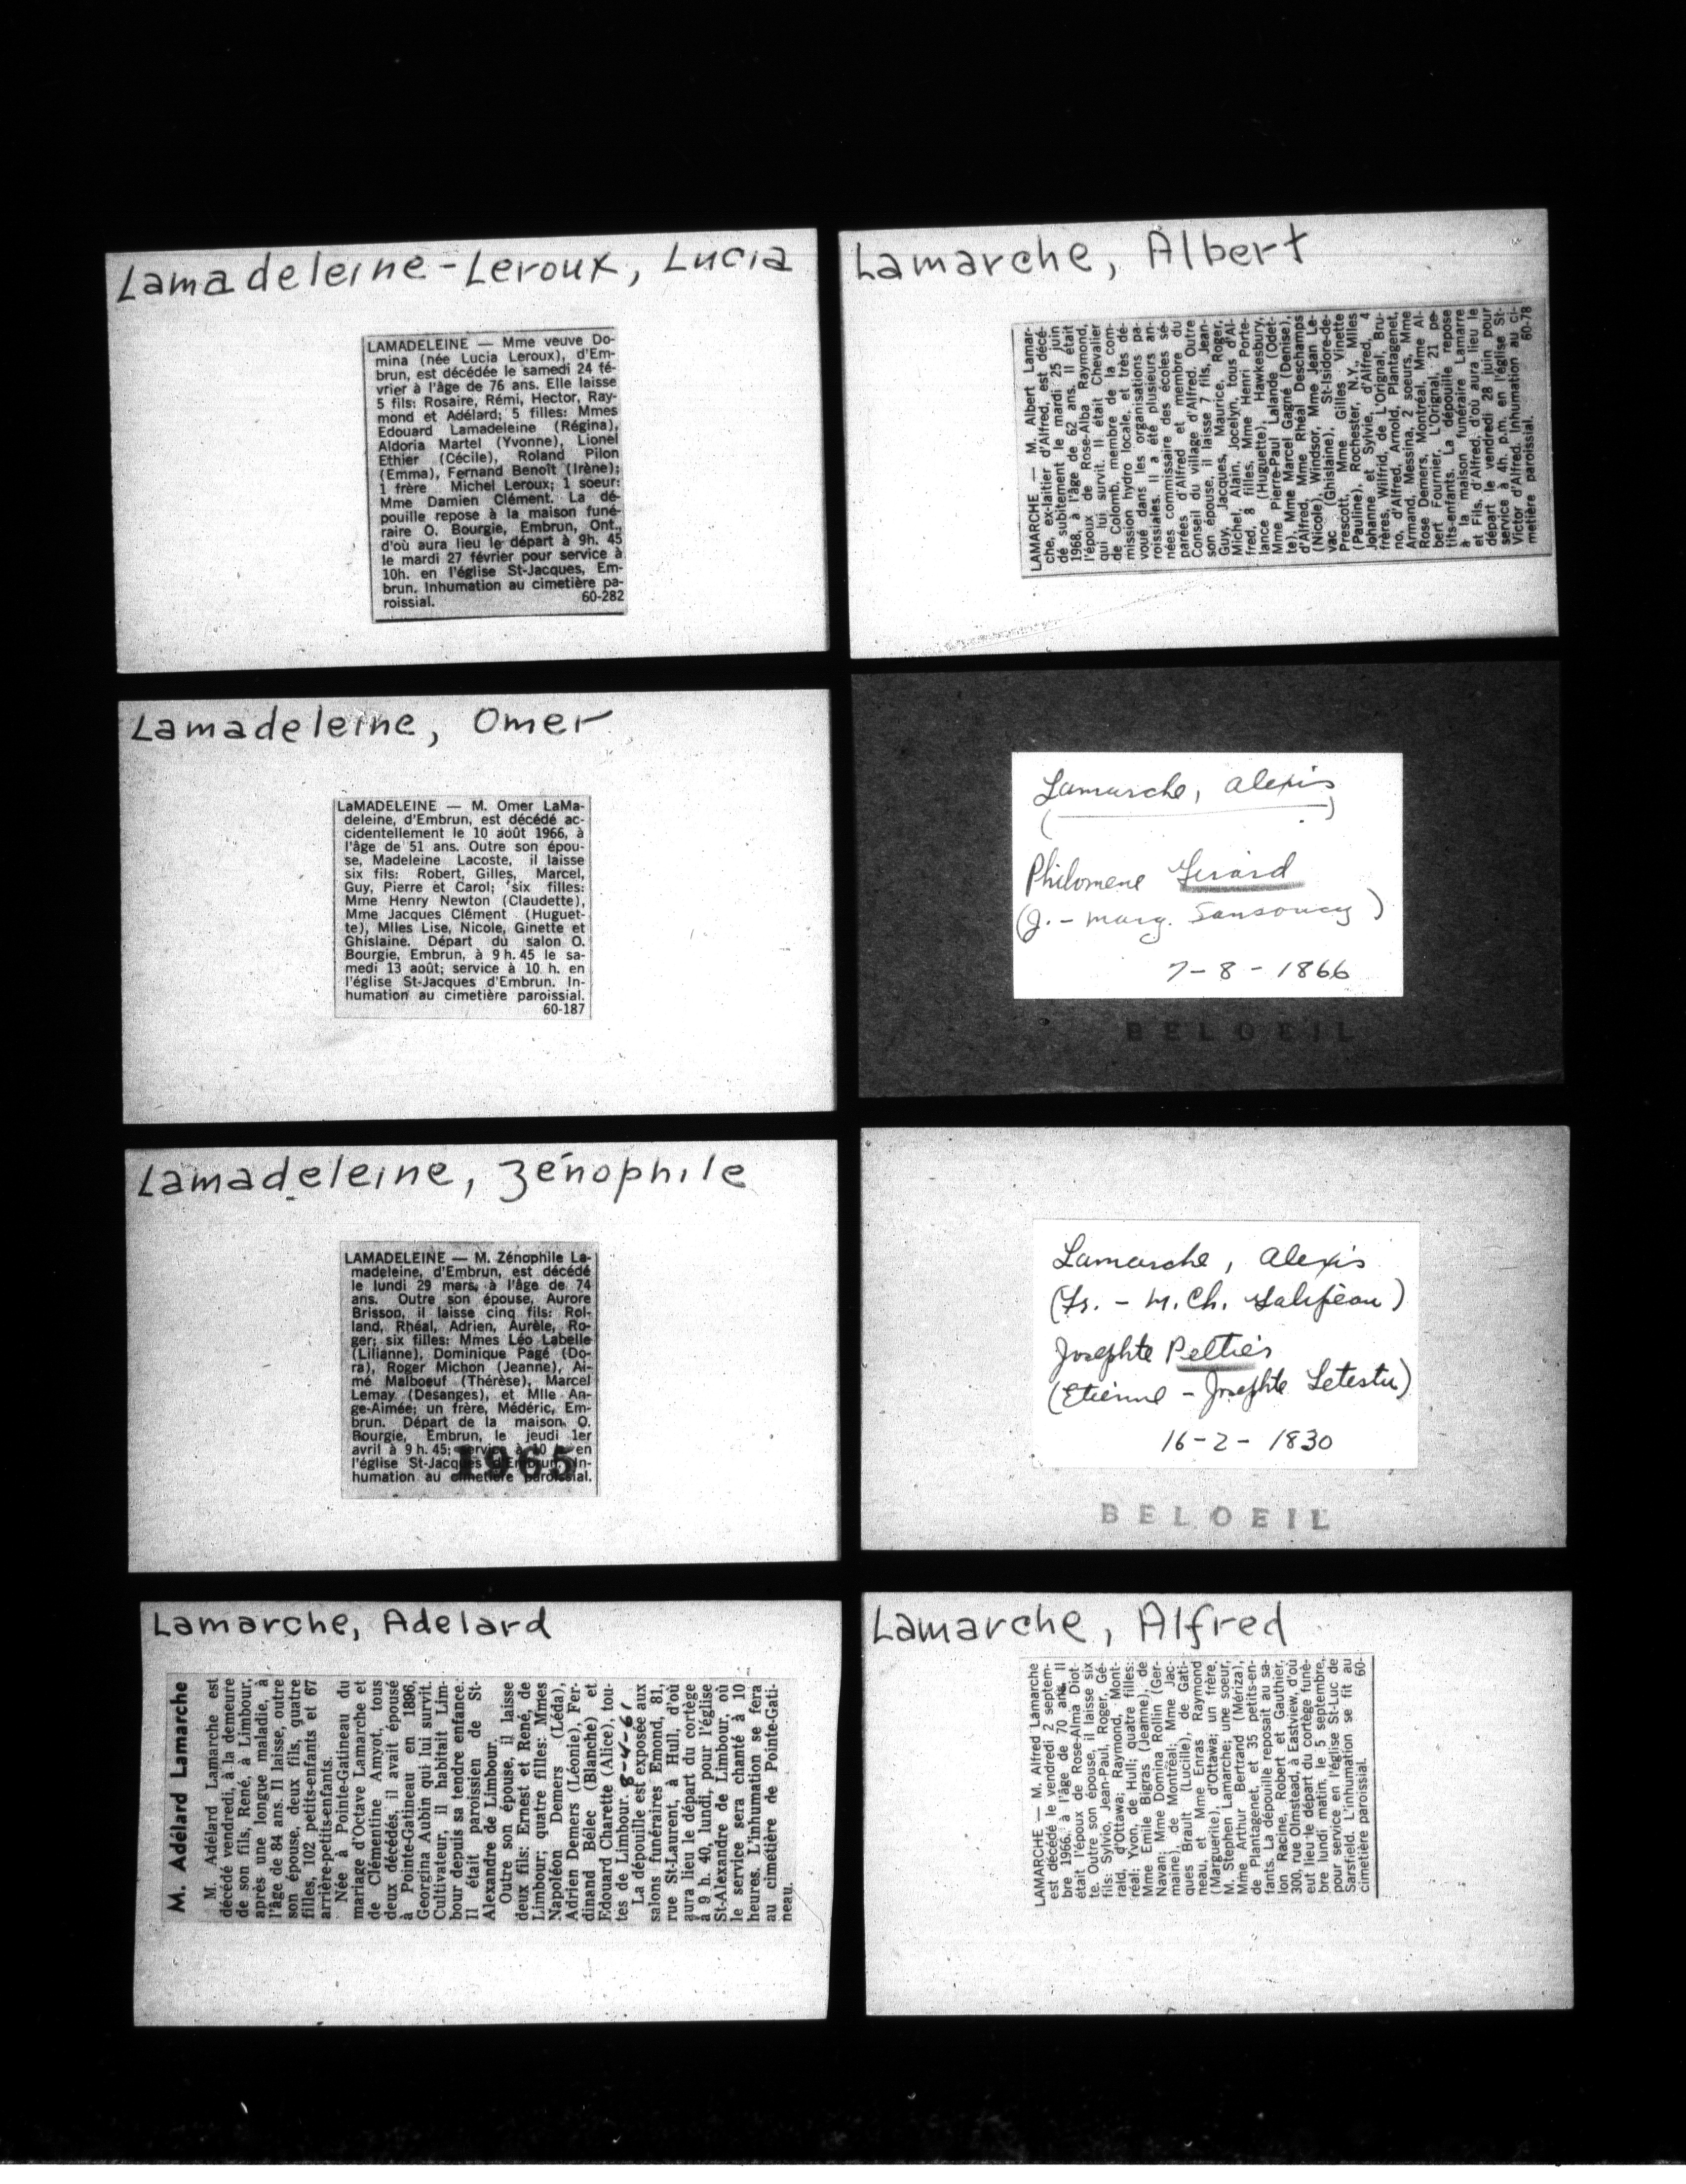 Lamadeleine-Leroux, Lucia
LAMADELEINE — Mme veuve Do-
mina (née Lucia Leroux), d'Em-
brun, est décédée le samedi 24 fé-
vrier à l'âge de 76 ans. Elle laisse
5 fils: Rosaire, Rémi, Hector, Ray-
mond et Adélard; 5 filles: Mmes
Edouard Lamadeleine (Régina),
Aldoria Martel (Yvonne), Lionel
Ethier (Cécile), Roland Pilon
(Emma), Fernand Benoît (Irène);
1 frère Michel Leroux; 1 soeur:
Mme Damien Clément. La dé-
pouille repose à la maison funé-
raire O. Bourgie, Embrun, Ont.,
d'où aura lieu le départ à 9h. 45
le mardi 27 février pour service à
10h. en l'église St-Jacques, Em-
brun. Inhumation au cimetière pa-
roissial. 60-282
Lamadeleine, Omer
LaMADELEINE — M. Omer LaMa-
deleine, d'Embrun, est décédé ac-
cidentellement le 10 août 1966, à
l'âge de 51 ans. Outre son épou-
se, Madeleine Lacoste, il laisse
six fils: Robert, Gilles, Marcel,
Guy, Pierre et Carol; six filles:
Mme Henry Newton (Claudette),
Mme Jacques Clément (Huguet-
te), Mlles Lise, Nicole, Ginette et
Ghislaine. Départ du salon O.
Bourgie, Embrun, à 9 h. 45 le sa-
medi 13 août; service à 10 h. en
l'église St-Jacques d'Embrun. In-
humation au cimetière paroissial.
60-187
Lamadeleine, Zénophile
LAMADELEINE — M. Zénophile La-
madeleine, d'Embrun, est décédé
le lundi 29 mars, à l'âge de 74
ans. Outre son épouse, Aurore
Brisson, il laisse cinq fils: Rol-
land, Rhéal, Adrien, Aurèle, Ro-
ger; six filles: Mmes Léo Labelle
(Lilianne), Dominique Pagé (Do-
ra), Roger Michon (Jeanne), Ai-
mé Malboeuf (Thérèse), Marcel
Lemay (Desanges), et Mlle An-
ge-Aimée; un frère, Médéric, Em-
brun. Départ de la maison O.
Bourgie, Embrun, le jeudi 1er
avril à 9 h. 45; service à 10 h. en
l'église St-Jacques d'Embrun. In-
humation au cimetière paroissial.
1965
Lamarche, Adelard
M. Adélard Lamarche
M. Adélard Lamarche est
décédé vendredi, à la demeure
de son fils, René, à Limbour,
après une longue maladie, à
l'âge de 84 ans. Il laisse, outre
son épouse, deux fils, quatre
filles, 102 petits-enfants et 67
arrière-petits-enfants.
Née à Pointe-Gatineau du
mariage d'Octave Lamarche et
de Clémentine Amyot, tous
deux décédés, il avait épousé
à Pointe-Gatineau en 1896,
Georgina Aubin qui lui survit.
Cultivateur, il habitait Lim-
bour depuis sa tendre enfance.
Il était paroissien de St-
Alexandre de Limbour.
Outre son épouse, il laisse
deux fils: Ernest et René, de
Limbour; quatre filles: Mmes
Napoléon Demers (Léda),
Adrien Demers (Léonie), Fer-
dinand Bélec (Blanche) et
Edouard Charette (Alice), tou-
tes de Limbour. 8-4-61
La dépouille est exposée aux
salons funéraires Emond, 81,
rue St-Laurent, à Hull, d'où
aura lieu le départ du cortège
à 9 h. 40, lundi, pour l'église
St-Alexandre de Limbour, où
le service sera chanté à 10
heures. L'inhumation se fera
au cimetière de Pointe-Gati-
neau.
Lamarche, Albert
LAMARCHE — M. Albert Lamar-
che, ex-laitier d'Alfred, est décé-
dé subitement le mardi 25 juin
1968, à l'âge de 62 ans. Il était
l'époux de Rose-Alba Raymond,
qui lui survit. Il était Chevalier
de Colomb, membre de la com-
mission hydro locale, et très dé-
voué dans les organisations pa-
roissiales. Il a été plusieurs an-
nées commissaire des écoles sé-
parées d'Alfred et membre du
Conseil du village d'Alfred. Outre
son épouse, il laisse 7 fils, Jean-
Guy, Jacques, Maurice, Roger,
Michel, Alain, Jocelyn, tous d'Al-
fred. 8 filles, Mme Henri Porte-
lance (Huguette), Hawkesbury,
Mme Pierre-Paul Lalande (Odet-
te), Mme Marcel Gagné (Denise),
d'Alfred, Mme Rhéal Deschamps
(Nicole), Windsor, Mme Jean Le-
vac (Ghislaine), St-Isidore-de-
Prescott, Mme Gilles Vinette
(Pauline), Rochester, N.Y., Mlles
Johanne et Sylvie, d'Alfred, 4
frères, Wilfrid, de L'Orignal, Bru-
no, d'Alfred, Arnold, Plantagenet,
Armand, Messina, 2 soeurs, Mme
Rose Demers, Montréal, Mme Al-
bert Fournier, L'Orignal, 21 pe-
tits-enfants. La dépouille repose
à la maison funéraire Lamarre
et Fils, d'Alfred, d'où aura lieu le
départ le vendredi 28 juin pour
service à 4h. p.m. en l'église St-
Victor d'Alfred. Inhumation au ci-
metière paroissial. 60-78
Lamarche, Alexis
( )
Philomene Girard
(J. - Marg. Sansoucy)
7-8-1866
BELOEIL
Lamarche, Alexis
(Fr. - M. Ch. Galipeau)
Josephte Peltier
(Etienne - Josephte Letestu)
16-2-1830
BELOEIL
Lamarche, Alfred
LAMARCHE — M. Alfred Lamarche
est décédé le vendredi 2 septem-
bre 1966, à l'âge de 70 ans. Il
était l'époux de Rose-Alma Diot-
te. Outre son épouse, il laisse six
fils: Sylvio, Jean-Paul, Roger, Gé-
rald, d'Ottawa; Raymond, Mont-
réal; Yvon, de Hull; quatre filles:
Mme Emile Bigras (Jeanne), de
Navan; Mme Domina Rollin (Ger-
maine), de Montréal; Mme Jac-
ques Brault (Lucille), de Gati-
neau, et Mme Enras Raymond
(Marguerite), d'Ottawa; un frère,
M. Stephen Lamarche; une soeur,
Mme Arthur Bertrand (Mériza),
de Plantagenet, et 35 petits-en-
fants. La dépouille reposait au sa-
lon Racine, Robert et Gauthier,
300, rue Olmstead, à Eastview, d'où
eut lieu le départ du cortège funè-
bre lundi matin, le 5 septembre,
pour service en l'église St-Luc de
Sarsfield. L'inhumation se fit au
cimetière paroissial. 60-